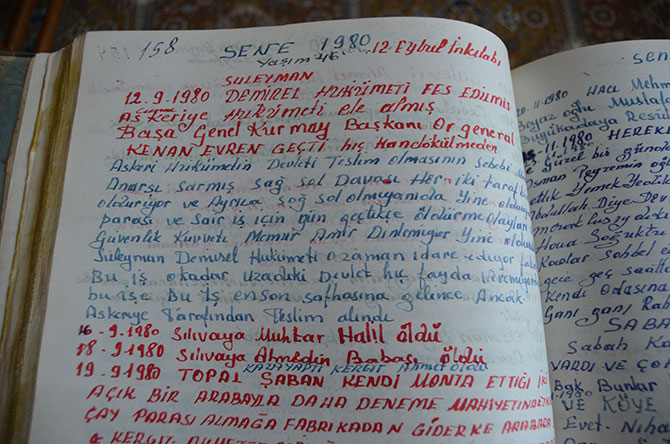 158
SENE 1980
Yaşım 46
12 Eylül İnkılabı
SULEYMAN
12.9-1980 DEMİREL HUKÜMETİ FES EDİLMİŞ
Askeriye HUKÜMETİ ele almış
Başa Genel Kurmay Başkanı Or general
KENAN EVREN GEÇTİ hiç Kandökülmeden
Askeri Hükümetin Devleti Teslim olmasının Sebebi
Anarşi sarmış sağ sol Davası Her iki tarafı
olduriyor ve Ayrıca sağ sol olmuyanıda Yine
parası ve Sair iş için gün geçtikçe öldürme olayları
Güvenlik Kuvveti Memur Amir Dinlemiyor Yine
Süleyman Demirel Hukümeti ozaman idare ediyor
Bu iş okadar uzadıki Devlet hiç fayda veremiyor
bu işe Bu iş enson safhasına gelince Ancak
Askeriye Tarafından Teslim alındı
16-9-1980 Silivaya Muhtar Halil öldü
18-9-1980 Silivaya Ahmedin Babası öldü
KARAYAPILI KERGİT Ahmet öldü
19.9 1980 TOPAL ŞABAN KENDİ MONTA ETTİĞİ
AÇIK BİR ARABAYLA DAHA DENEME MAHİYETİNDE
ÇAY PARASI ALMAĞA FABRİKADAN GİDERKE ARABADA
KERGİT
SEN
11-1980 HACI Mehm
Beyaz oğlu Mustafa
11.1980 HEREK
Güzel bir günde
Osman
ettik Yemek Yedik
Abdullah Diye. De
Hava Soğuktu
sohbet
gece geç saat
Kendi Odasına
Gani gani Ra
SABA
Sabah Ka
VARDI VE ÇO
Bak Bunlar
VE KÖYE
Evet. Niha